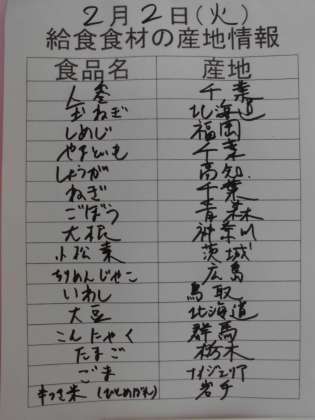 2月2日(火)
給食食材の産地情報
食品名 産地
人参 千葉
玉ねぎ 北海道
しめじ 福岡
やまといも 千葉
しょうが 高知
ねぎ 千葉
ごぼう 青森
大根 神奈川
小松菜 茨城
ちりめんじゃこ 広島
いわし 鳥取
大豆 北海道
こんにゃく 群馬
たまご 栃木
ごま ナイジェリア
七分つき米(ひとめぼれ) 岩手